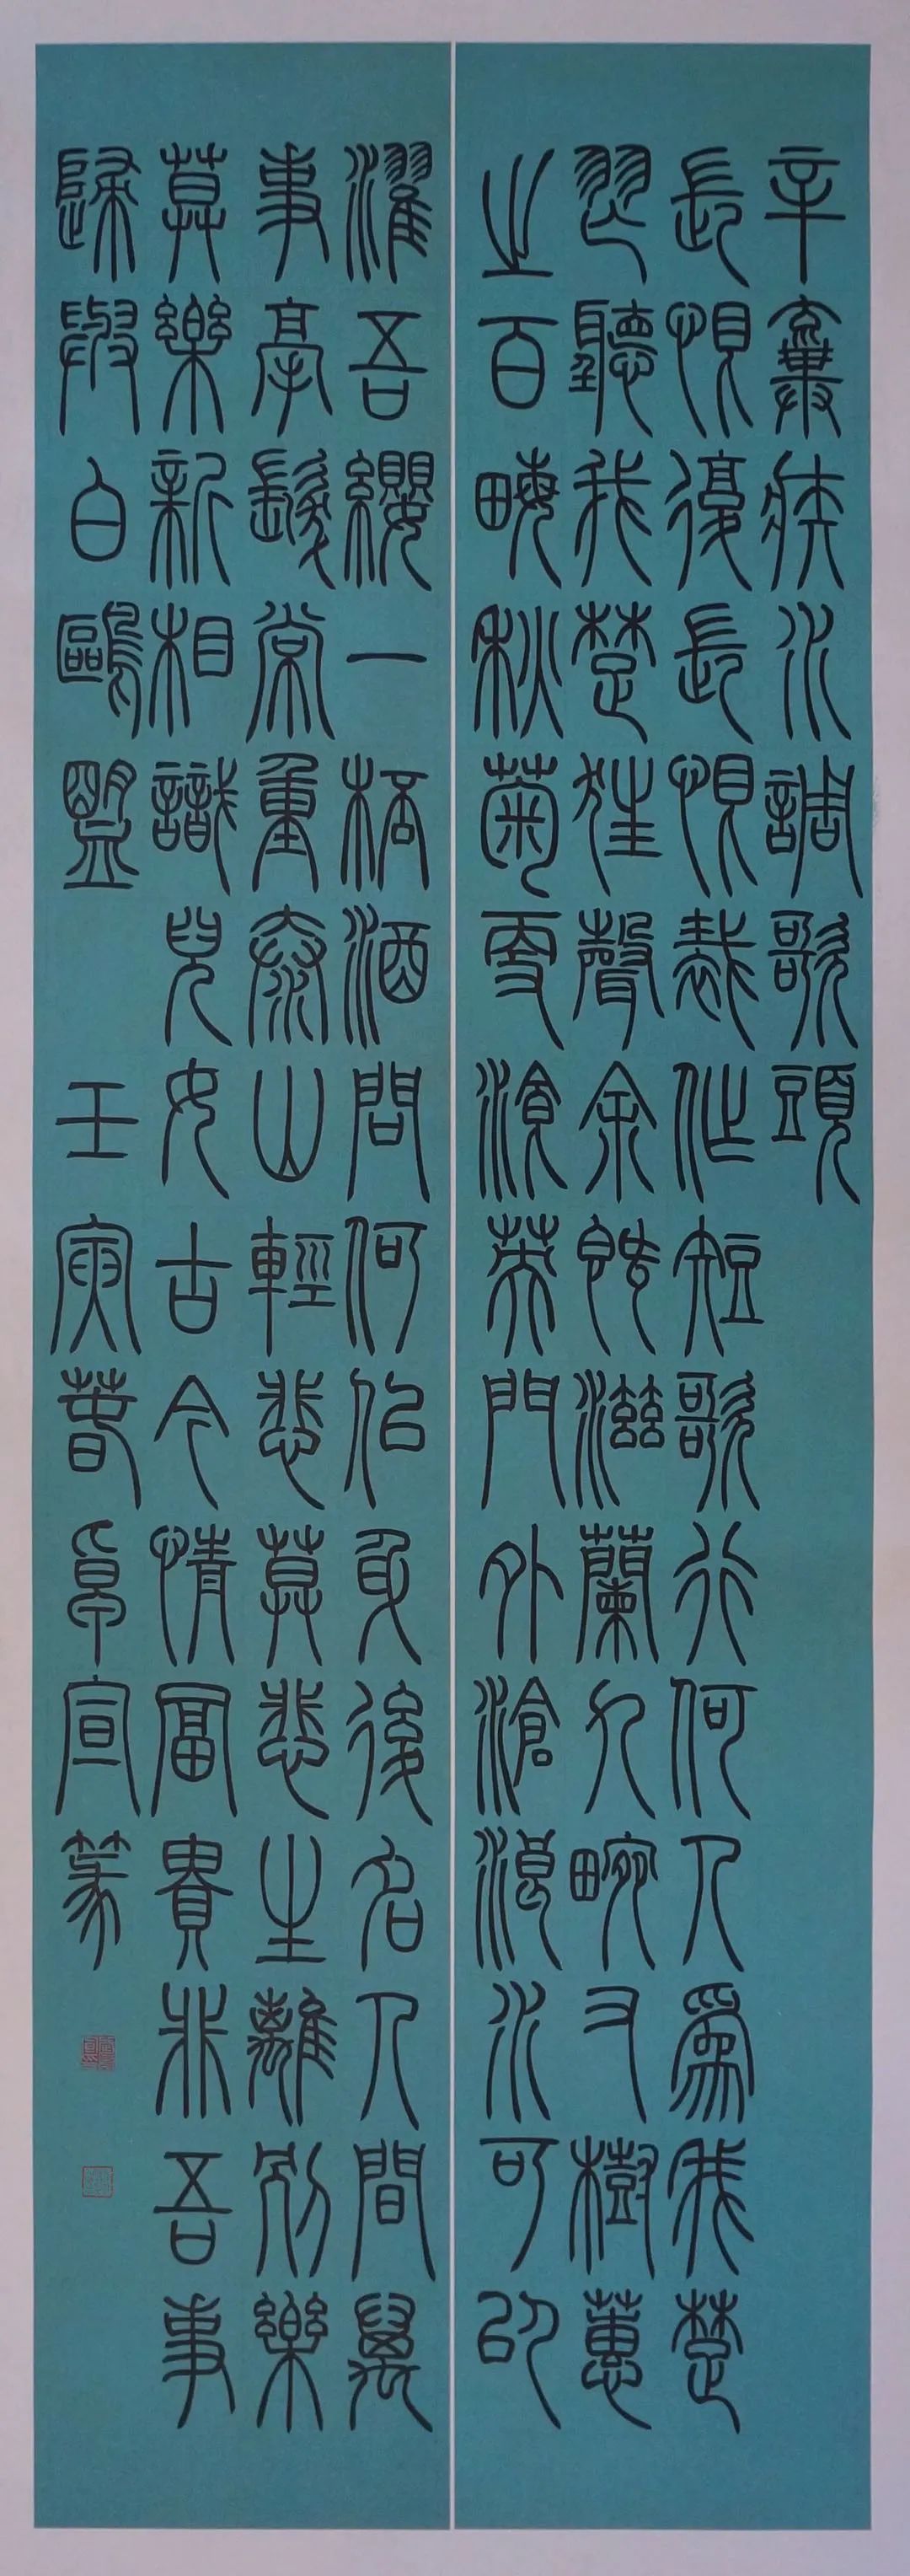 辛棄疾水調歌頭
長恨復長恨裁作短歌行何人爲我楚
舞聽我楚狂聲余既滋蘭九畹又樹蕙
之百畮秋菊更湌英門外滄浪水可㠯
濯吾纓一桮酒問何佀身後名人間萬
事毫髮常重泰山輕悲莫悲生離別樂
莫樂新相識兒女古今情富貴非吾事
歸與白鷗盟 壬寅萅卓宣篆